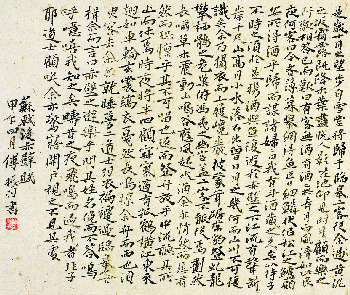 是歲十月之望步自雪堂將歸于臨皋二客從余過黃泥
之坂霜露既降木葉盡脫人影在地仰見明月顧而樂之
行歌相答已而歎曰有客無酒有酒無肴月白風清如此良
夜何客曰今者薄暮舉網得魚巨口細鱗狀似松江之鱸顧
安所得酒乎歸而謀諸婦婦曰我有斗酒藏之久矣以待子
不時之須於是攜酒與魚復遊於赤壁之下江流有聲斷
岸千尺山高月小水落石出曾日月之幾何而江山不可復
識矣余乃攝衣而上履巉巖披蒙茸踞虎豹登虯龍
攀栖鶻之危巢俯馮夷之幽宮蓋二客不能從焉劃然長嘯
草木震動山鳴谷應風起水涌余亦悄然而悲肅
然而恐凜乎其不可留也反而登舟放乎中流聽其所
止而休焉時夜將半四顧寂寥適有孤鶴橫江東來
翅如車輪玄裳縞衣戛然長鳴掠余舟而西也須
臾客去余亦就睡夢一道士羽衣蹁躚過臨皋之下
揖余而言曰赤壁之遊樂乎問其姓名俛而不答嗚
呼噫嘻我知之矣疇昔之夜飛鳴而過我者非子也
耶道士顧笑余亦驚寤開戶視之不見其處
蘇軾後赤壁賦
甲午四月傅書